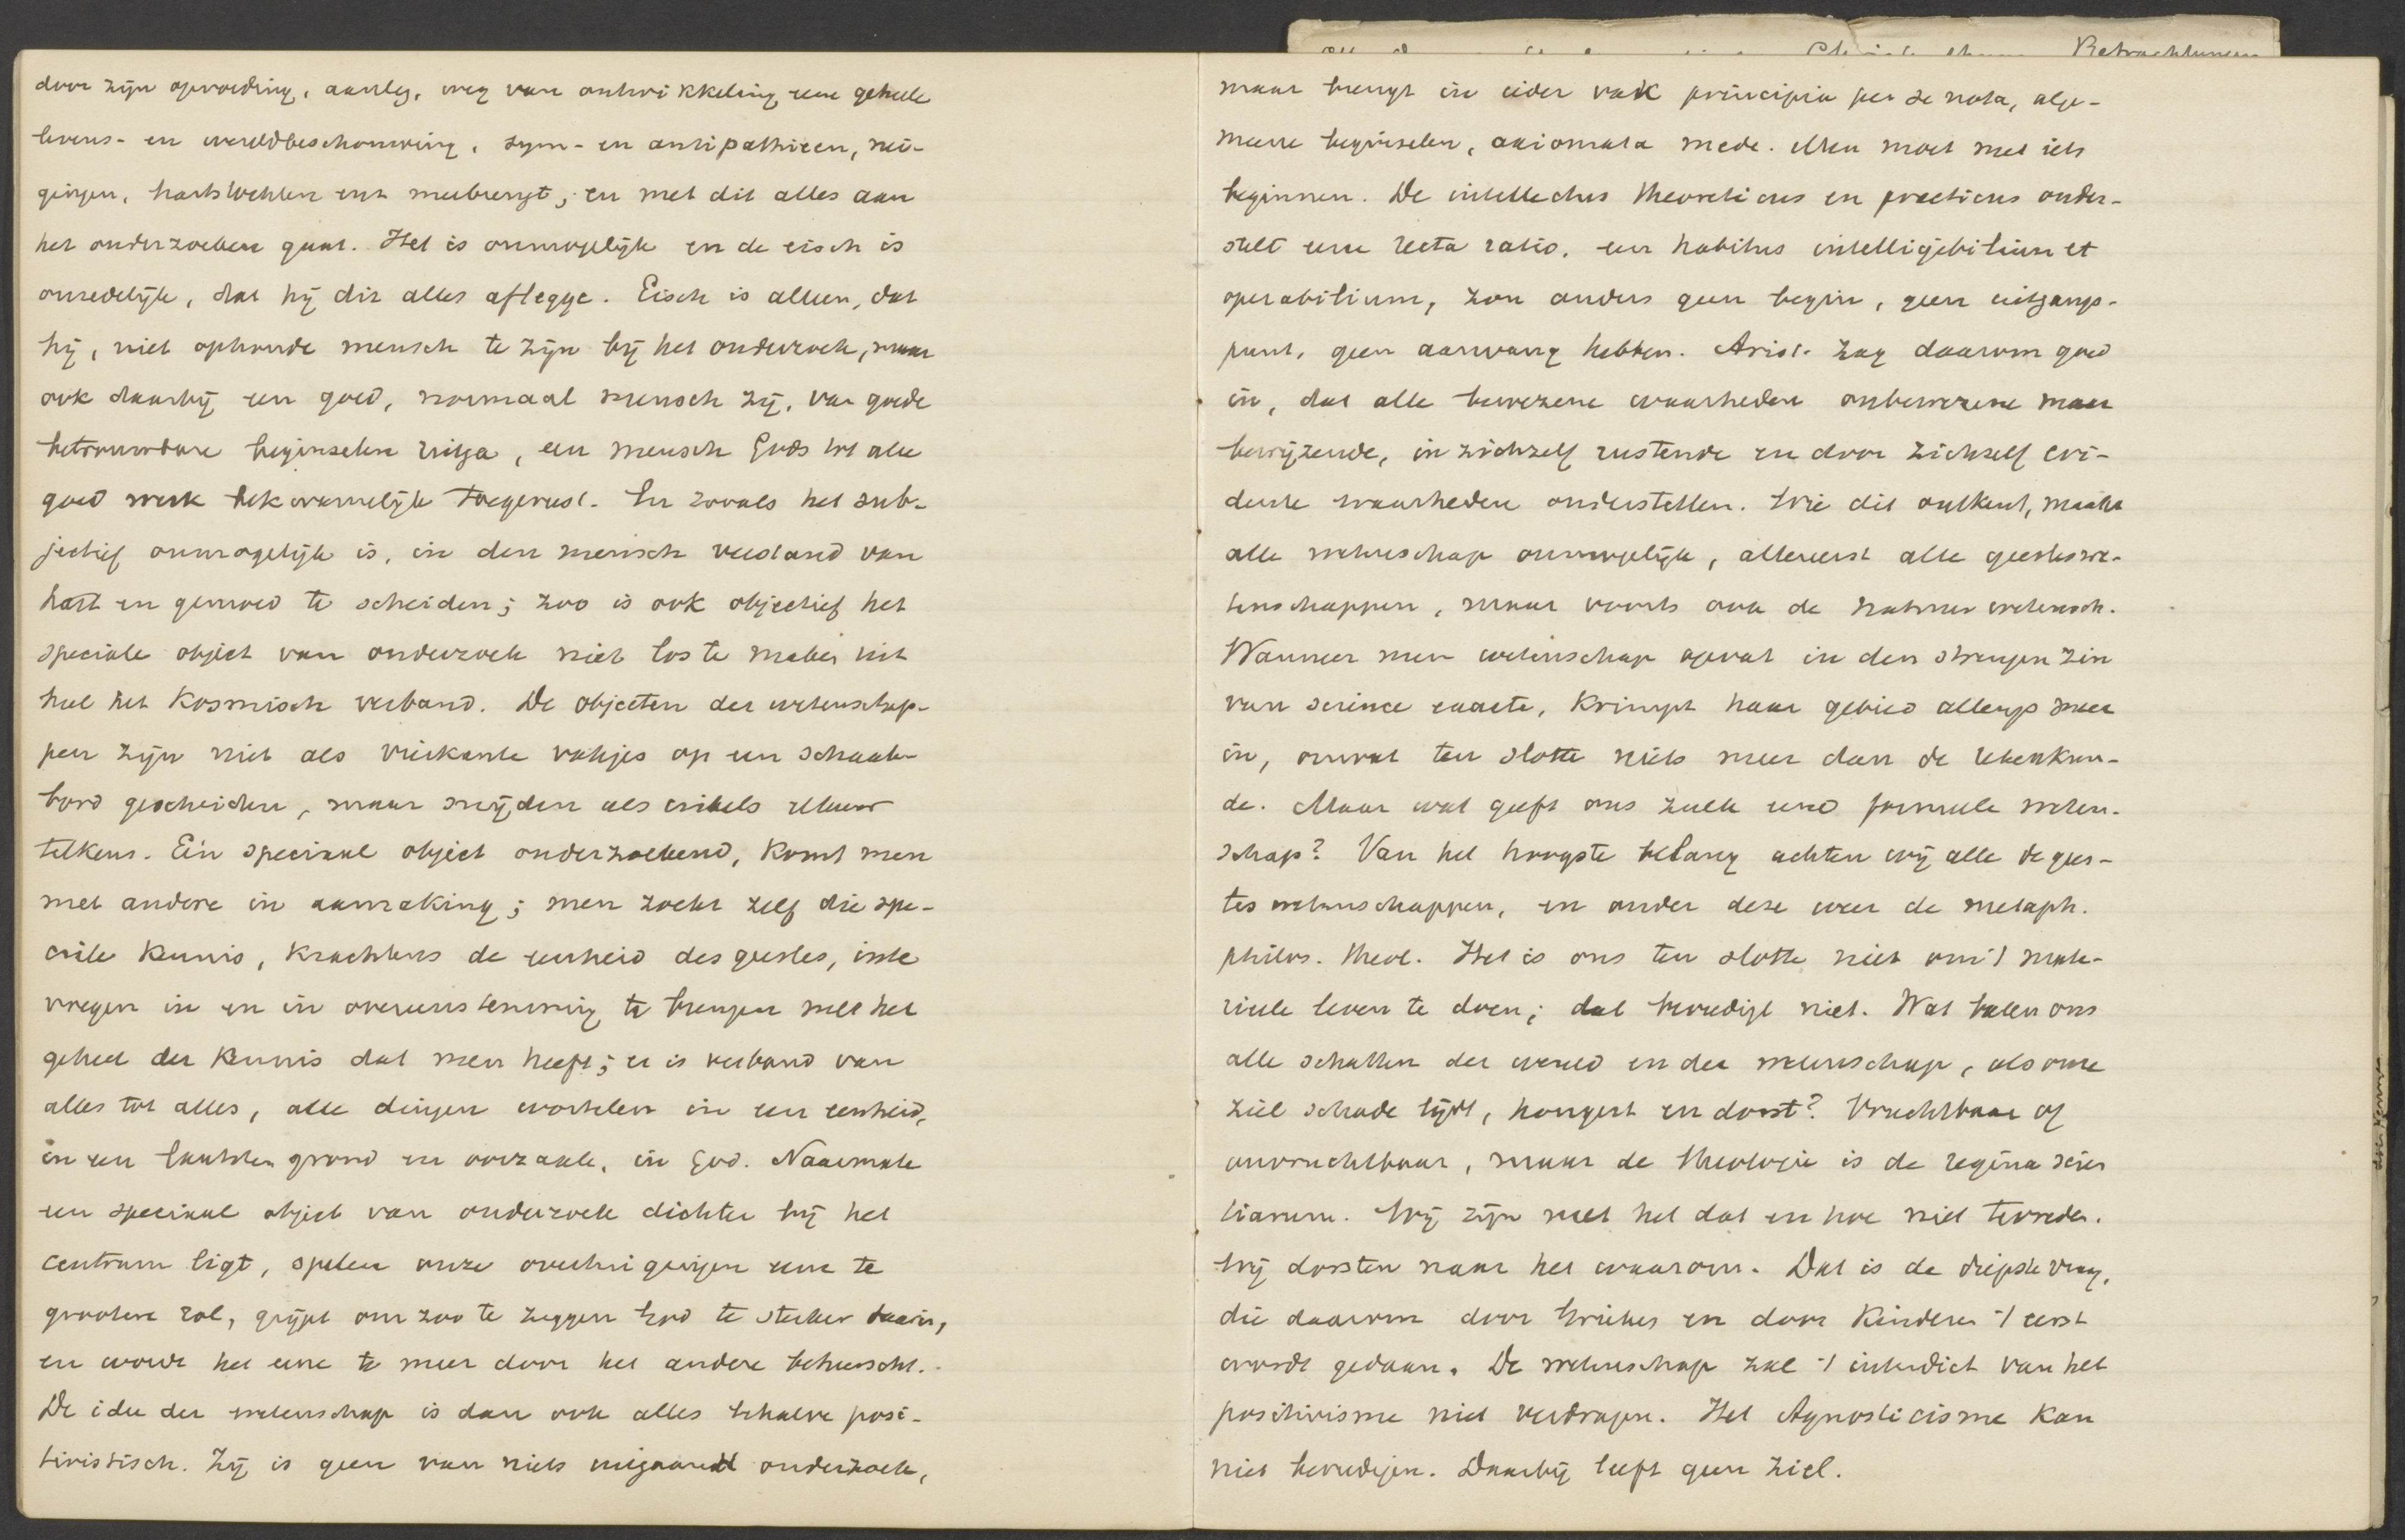 door zijn opvoeding, aanleg, weg van ontwikkeling eene geheele
levens- en wereldbeschouwing, sym- en antipathieen, nei-
gingen, hartstochten enz meebrengt; en met dit alles aan
het onderzoeken gaat. Het is onmogelijk en de eisch is
onredelijk, dat hij dit alles aflegge. Eisch is alleen, dat
hij, niet ophoude mensch te zijn bij het onderzoek, maar
ook daarbij een goed, normaal mensch zij, van goede
betrouwbare beginselen uitga, een mensch Gods tot alle
goed werk bekwamelijk toegerust. En zooals het sub-
jectief onmogelijk is, in den mensch verstand van
hart en gemoed te scheiden; zoo is ook objectief het
speciale object van onderzoek niet los te maken uit
heel het kosmisch verband. De objecten der wetenschap-
pen zijn niet als vierkante vakjes op een schaak-
bord gescheiden, maar snijden als cirkels elkaar
telkens. Eén speciaal object onderzoekend, komt men
met andere in aanraking; men zoekt zelf die spe-
ciale kennis, krachtens de eenheid des geestes, in te
voegen in en in overeenstemming te brengen met het
geheel der kennis dat men heeft; er is verband van
alles tot alles, alle dingen wortelen in een eenheid,
in een laatsten grond en oorzaak, in God. Naarmate
een speciaal object van onderzoek dichter bij het
centrum ligt, spelen onze overtuigingen eene te
grootere rol, grijpt om zoo te zeggen God te sterker daarin,
en wordt het eene te meer door het andere beheerscht.
De idee der wetenschap is dan ook alles behalve posi-
tivistisch. Zij is geen van niets uitgaand onderzoek,
maar brengt in ieder vak principia per se nota, alge-
meene beginselen, axiomata mede. Men moet met iets
beginnen. De intellectus theoreticus en practicus onder-
stelt eene recta ratio, een habitus intelligibilium et
operabilium, zou anders geen begin, geen uitgangs-
punt, geen aanvang hebben. Arist. zag daarom goed
in, dat alle bewezene waarheden onbewezene maar
bewijzende, in zichzelf rustende en door zichzelf evi-
dente waarheden onderstellen. Wie dit ontkent, maakt
alle wetenschap onmogelijk, allereerst alle geesteswe-
tenschappen, maar voorts ook de natuurwetensch.
Wanneer men wetenschap opvat in den strengen zin
van science exacte, krimpt haar gebied allengs meer
in, omvat ten slotte niets meer dan de rekenkun-
de. Maar wat geeft ons zulk eene formeele weten-
schap? Van het hoogste belang achten wij alle de gees-
tes wetenschappen, en onder deze weer de metaph.
philos. theol. Het is ons ten slotte niet om 't mate-
rieele leven te doen; dat bevredigt niet. Wat baten ons
alle schatten der wereld en der wetenschap, als onze
ziel schade lijdt, hongert en dorst? Vruchtbaar of
onvruchtbaar, maar de theologie is de regina scien
tiarum. Wij zijn met het dat en hoe niet tevreden.
Wij dorsten naar het waarom. Dat is de diepste vraag,
die daarom door Grieken en door kinderen 't eerst
wordt gedaan. De wetenschap zal 't interdict van het
positivisme niet verdragen. Het Agnosticisme kan
niet bevredigen. Daarbij leeft geen ziel.